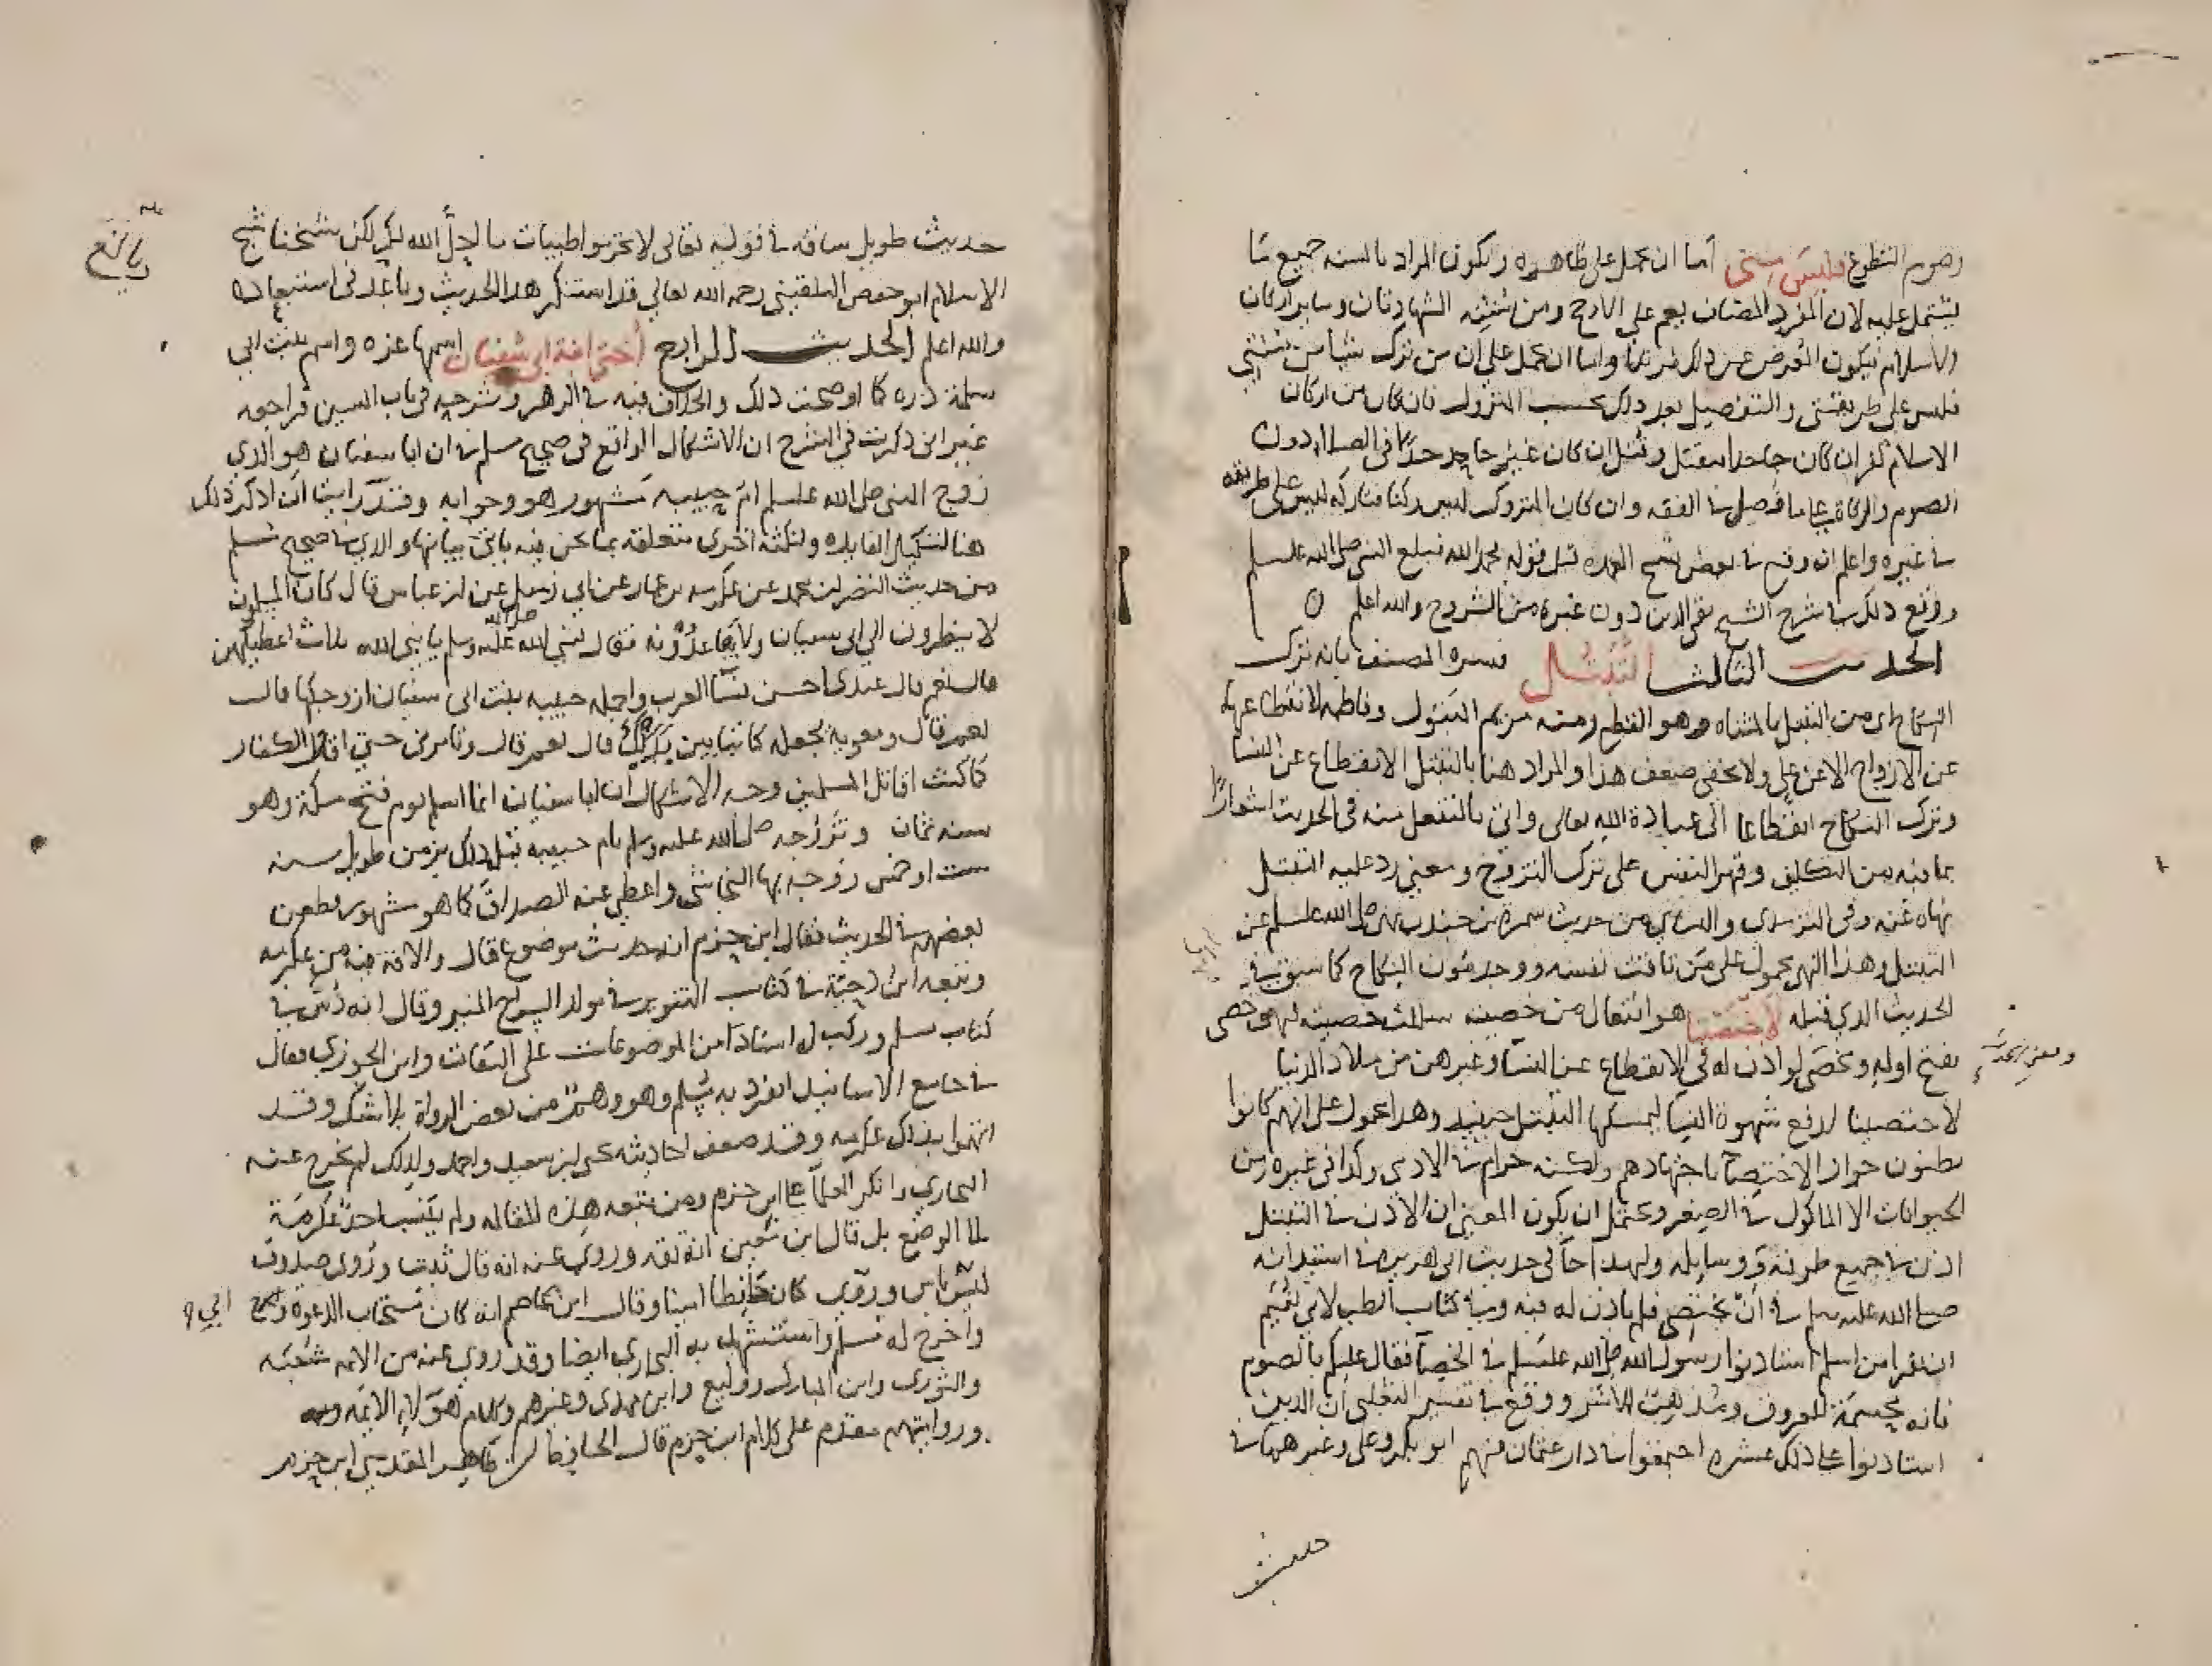 وصوم التطوع فليس مني اما ان يحمل على ظاهره ويكون المراد بالسنه جميع ما
يشتمل عليه لان المفرد المضاف يعم على الارجح ومن سنته الشهادتان وساير اركان
الاسلام فيكون المعرض عن ذلك مرتدا واما ان يحمل على ان من ترك شيا من سنتي
فليس على طريقتي والتفصيل بعد ذلك بحسب المتروك فان كان من اركان
الاسلام كفر ان كان جاحدا فيقتل وقتل ان كان غير جاحد حدا في الصلاة دون
الصوم والزكاة على ما فصل في الفقه وان كان المتروك ليس ركنا فتاركه ليس على طريقه
في غيره واعلم انه وقع في بعض نسخ العمده قبل قوله فحمد الله فبلغ النبي صلى الله عليه وسلم
ووقع ذلك في شرح الشيخ تقي الدين دون غيره من الشروح والله اعلم ٥
الحديث الثالث التبتل فسره المصنف بانه ترك
النكاح اي من التبتل بالمثناه وهو القطع ومنه مريم البتول وفاطمه لانقطاعهما
عن الازواج الا عن علي ولا يخفى ضعف هذا والمراد هنا بالتبتل الانقطاع عن النسا
وترك النكاح انقطاعا الى عبادة الله تعالى واتى بالتفعل منه في الحديث اشعارا
بما فيه من التكلف وقهر النفس على ترك التزوج ومعنى رد عليه التبتل
نهاه عنه وفي الترمذي والنساي من حديث سمرة بن جندب نهى صلى الله عليه وسلم عن
التبتل وهذا النهي محمول على من تاقت نفسه ووجد مون النكاح كما سبق في
الحديث الذي قبله لاختصينا هو افتعال من خصيه سللت خصيته فهو خصي
بفتح اوله ومعنى الحديث لو اذن له في الانقطاع عن النسا وغيرهن من ملاذ الدنيا
لاختصينا لدفع شهوة النسا ليمكنا التبتل حينيد وهدا محمول على انهم كانوا
يظنون جواز الاختصا باجتهادهم ولكنه حرام في الادمي وكدا في غيره من
الحيوانات الا الماكول في الصغر ويحتمل ان يكون المعنى ان الاذن في التبتل
اذن في جميع طرقه ووسايله ولهدا جا في حديث ابي هريره في استيدانه
صلى الله عليه وسلم في ان يختصي فلم ياذن له فيه وفي كتاب الطب لابي نعيم
ان نفرا من اسلم استاذنوا رسول الله صلى الله عليه وسلم في الخصا فقال عليكم بالصوم
فانه محسمة للعروق ومذهبة للاشر ووقع في تفسير الثعلبي ان الدين
استاذنوا على ذلك عشره اجتمعوا في دار عثمان منهم ابو بكر وعلي وغيرهما في
حديث
حديث طويل ساقه في قوله تعالى لا تحرموا طيبات ما احل الله لكم لكن شيخنا شيخ
الاسلام ابو حفص البلقيني رحمه الله تعالى قد استنكر هدا الحديث وبالغ في استبعاده
والله اعلم الحديث الرابع اختي ابنة ابي سفيان اسمها عزه واسم بنت ابي
سلمة دره كما اوضحت ذلك والخلاف فيه في الزهر وشرحه في باب السين فراجعه
غير اني ذكرت في الشرح ان الاشكال الواقع في صحيح مسلم في ان ابا سفيان هو الذي
زوج النبي صلى الله عليه وسلم ام حبيبه مشهور هو وجوابه وقد رايت ان اذكر ذلك
هنا لتكميل الفايده ولنكتة اخرى متعلقه بما نحن فيه ياتي بيانها والذي في صحيح مسلم
من حديث النضر بن محمد عن عكرمه بن عمار عن ابي زميل عن ابن عباس قال كان المسلمون
لا ينظرون الى ابي سفيان ولا يقاعدونه فقال لنبي الله صلى الله عليه وسلم يا نبي الله ثلاث اعطنيهن
قال نعم قال عندي احسن نسا العرب واجمله حبيبه بنت ابي سفيان ازوجكها قال
نعم قال ومعوية تجعله كاتبا بين يديك قال نعم قال وتامرني حتى اقاتل الكفار
كما كنت اقاتل المسلمين وجه الاشكال ان ابا سفيان انما اسلم يوم فتح مكة وهو
سنه ثمان وتزوجه صلى الله عليه وسلم بام حبيبة قبل ذلك بزمن طويل سنه
ست او خمس زوجه بها النجاشي واعطى عنه الصداق كما هو مشهور فطعن
بعضهم في الحديث فقال ابن حزم انه حديث موضوع قال والافة فيه من عكرمه
وتبعه ابن دحية في كتاب التنوير في مولد السراج المنير وقال انه دس في
كتاب مسلم وركب له اسنادا من الموضوعات على الثقات وابن الجوزي فقال
في جامع الاسانيد انفرد به مسلم وهو وهم من بعض الرواة بلا شك وقد
اتهموا بذلك عكرمه وقد ضعف احاديثه يحيى بن سعيد واحمد ولذلك لم يخرج عنه
البخاري وانكر العلما على ابن حزم ومن تبعه هذه المقاله ولم ينسب احد عكرمة
الى الوضع بل قال ابن معين انه ثقه وروي عنه انه قال ثبت وروي صدوق
ليس به باس وروي كان حافظا امينا وقال ابن عاصم انه كان مستجاب الدعوة
واخرج له مسلم واستشهد به البخاري ايضا وقد روى عنه من الايمه شعبه
والثوري وابن المبارك ووكيع وابن مهدي وغيرهم وكلام هولا الايمه فيه
وروايتهم مقدم على كلام ابن حزم قال الحافظ ابن طاهر المقدسي ابن حزم